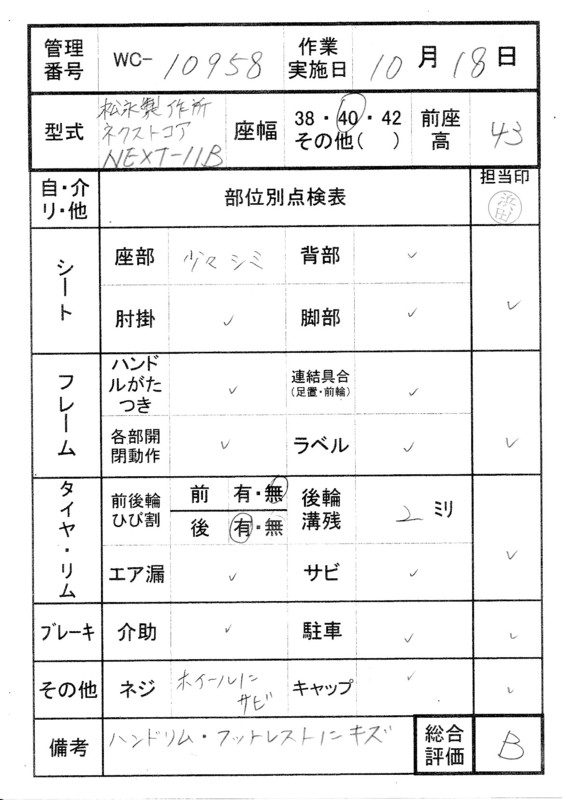 管理番号 WC- 10958 作業実施日 10月18日
型式 松永製作所 ネクストコア NEXT-11B 座幅 38・40・42 その他( ) 前座高 43
自・介 リ・他 部位別点検表 担当印 浜田
シート 座部 少々シミ 背部 ✓
肘掛 ✓ 脚部 ✓ ✓
フレーム ハンドルがたつき ✓ 連結具合(足置・前輪) ✓
各部開閉動作 ✓ ラベル ✓ ✓
タイヤ・リム 前後輪ひび割 前 有・無 後 有・無 後輪溝残 2 ミリ
エア漏 ✓ サビ ✓ ✓
ブレーキ 介助 ✓ 駐車 ✓ ✓
その他 ネジ ホイールにサビ キャップ ✓ ✓
備考 ハンドリム・フットレストにキズ 総合評価 B